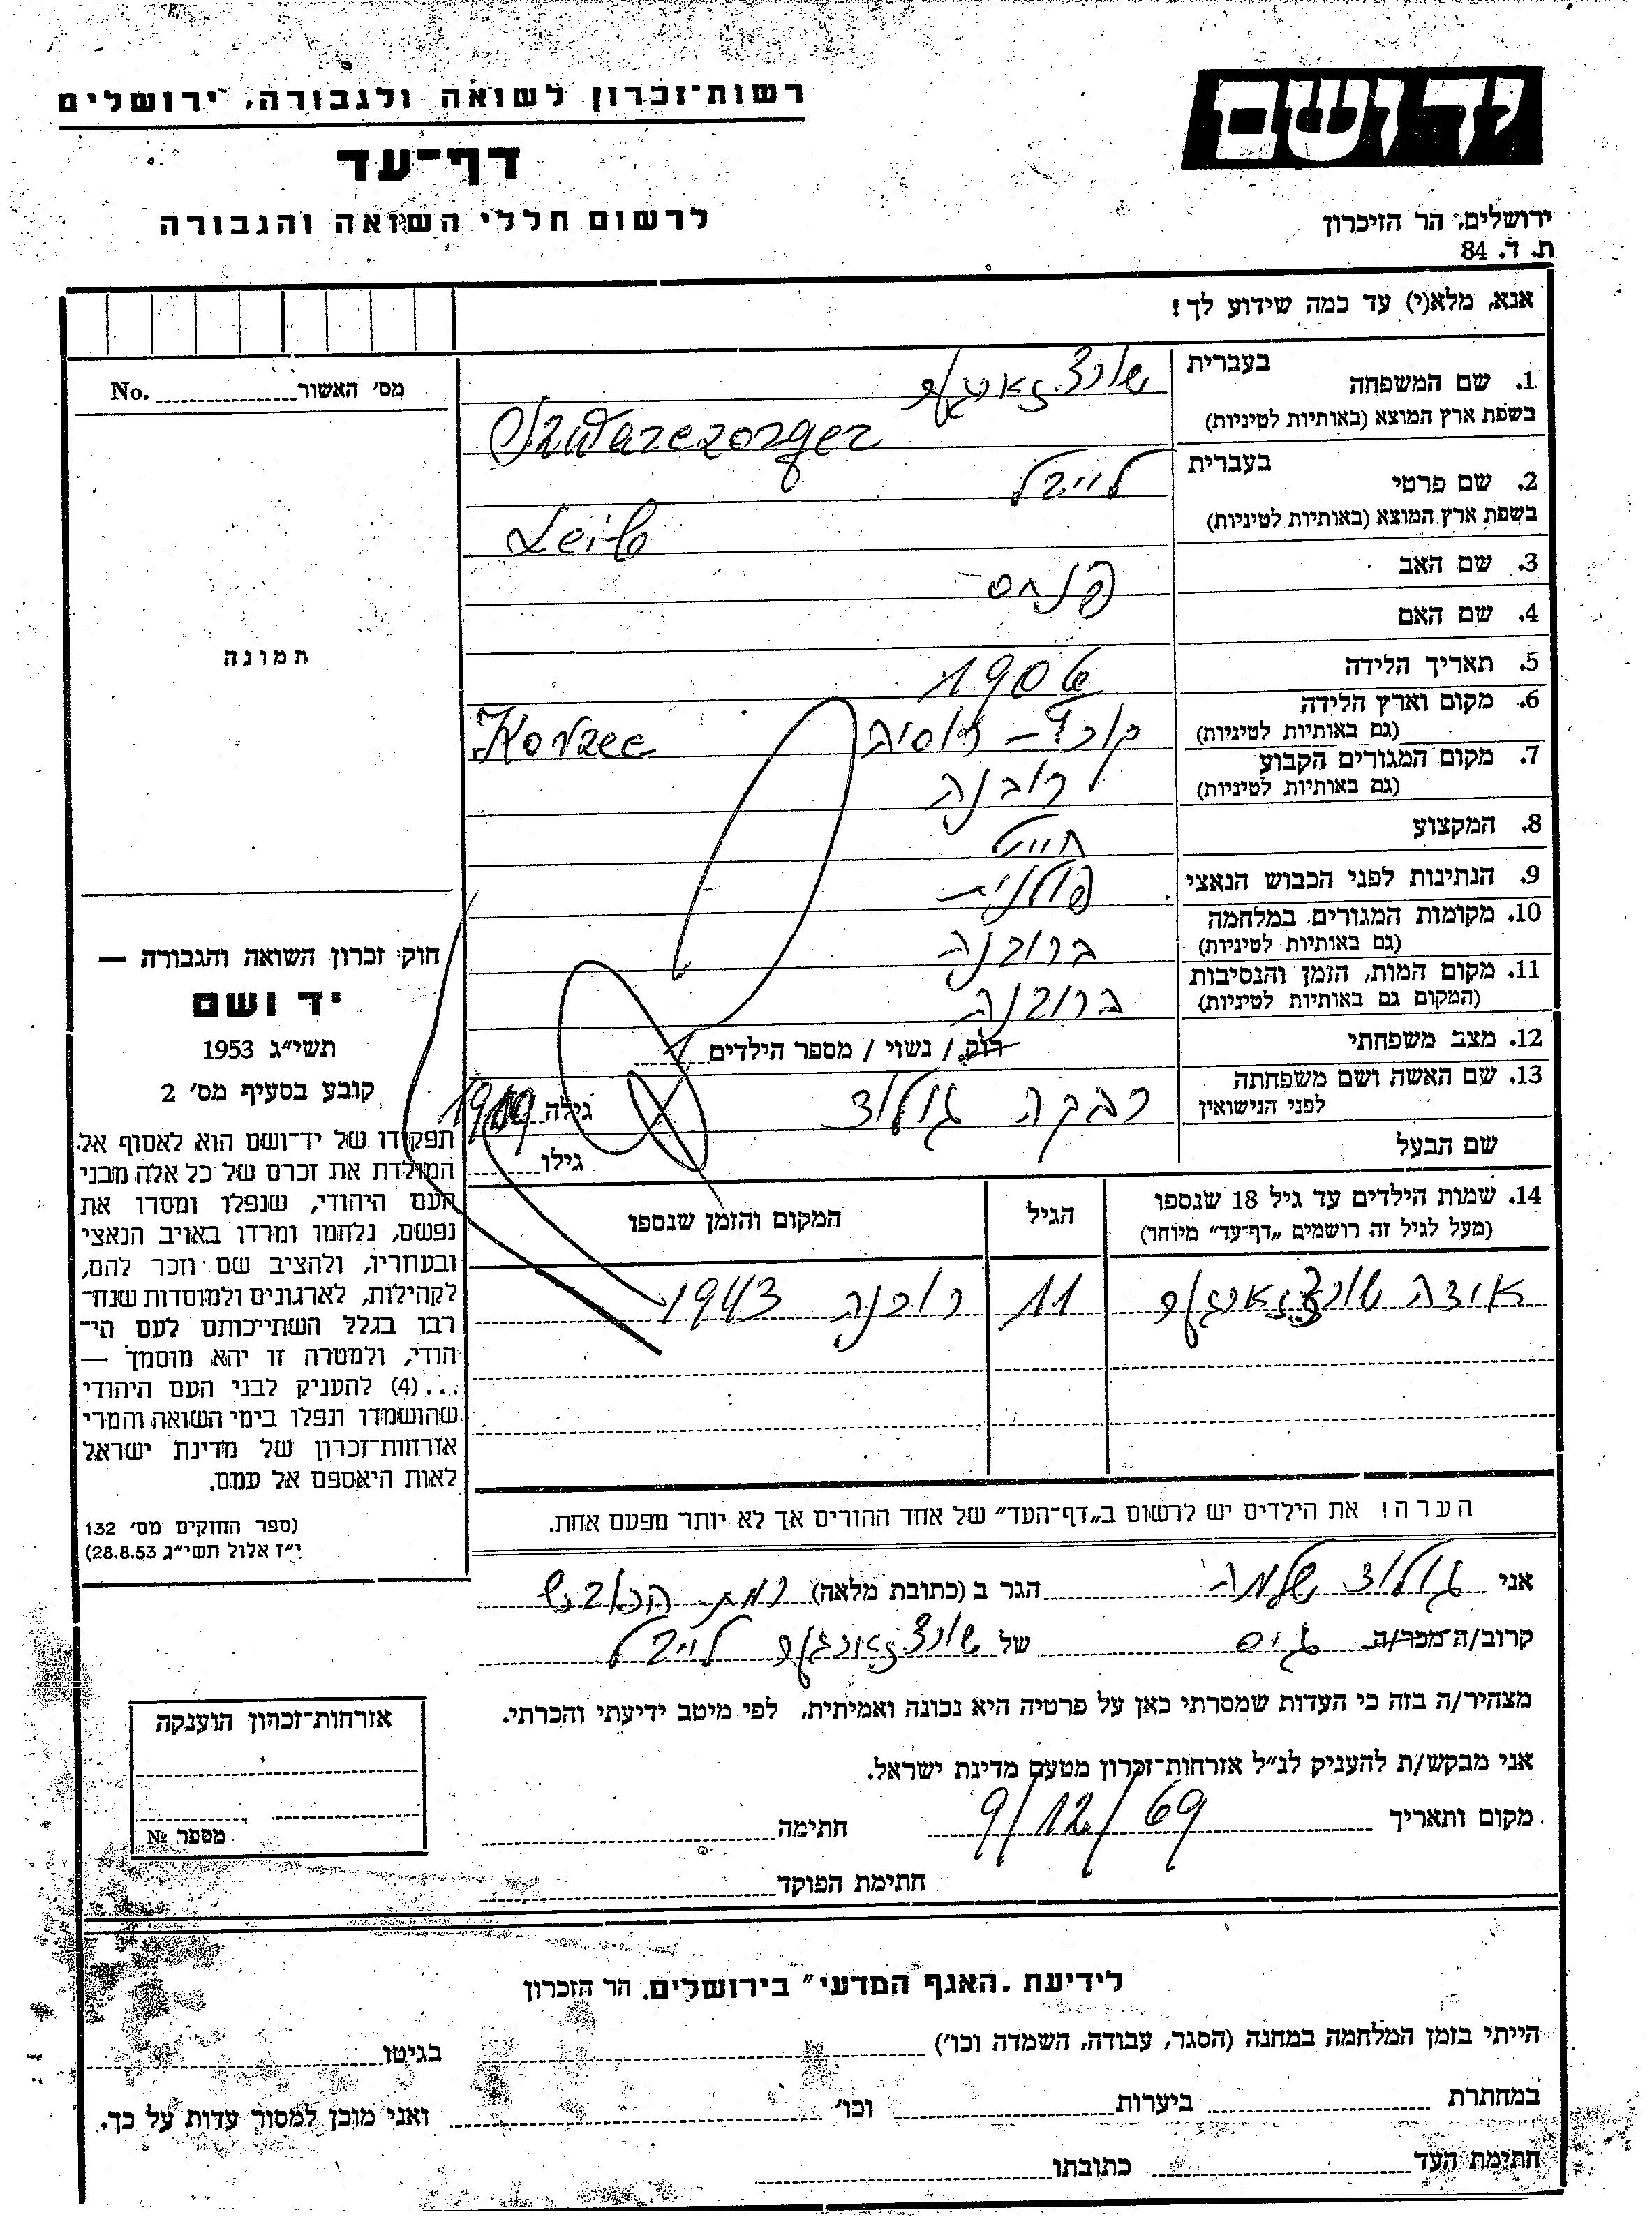 רשות־זכרון לשואה ולגבורה, ירושלים
דף־עד
לרשום חללי השואה והגבורה
יד ושם
ירושלים, הר הזיכרון
ת. ד. 84
אנא, מלא(י) עד כמה שידוע לך!
1. שם המשפחה
בעברית
בשפת ארץ המוצא (באותיות לטיניות)
2. שם פרטי
בעברית לייבל
בשפת ארץ המוצא (באותיות לטיניות) Leib
3. שם האב פנחס
4. שם האם
5. תאריך הלידה 1906
6. מקום וארץ הלידה
(גם באותיות לטיניות) Korzec
7. מקום המגורים הקבוע רובנה
(גם באותיות לטיניות)
8. המקצוע חייט
9. הנתינות לפני הכבוש הנאצי פולנית
10. מקומות המגורים במלחמה ברובנה
(גם באותיות לטיניות)
11. מקום המות, הזמן והנסיבות ברובנה
(המקום גם באותיות לטיניות)
12. מצב משפחתי רווק / נשוי / מספר הילדים 1
13. שם האשה ושם משפחתה רבקה גולוד גילה
לפני הנישואין
שם הבעל גילו
14. שמות הילדים עד גיל 18 שנספו הגיל המקום והזמן שנספו
(מעל לגיל זה רושמים „דף־עד” מיוחד)
11 רובנה 1943
הערה! את הילדים יש לרשום ב„דף־העד” של אחד ההורים אך לא יותר מפעם אחת.
מס' האשור No.
תמונה
חוק זכרון השואה והגבורה —
יד ושם
תשי״ג 1953
קובע בסעיף מס' 2
תפקידו של יד־ושם הוא לאסוף אל
המולדת את זכרם של כל אלה מבני
העם היהודי, שנפלו ומסרו את
נפשם, נלחמו ומרדו באויב הנאצי
ובעוזריו, ולהציב שם וזכר להם,
לקהילות, לארגונים ולמוסדות שנח־
רבו בגלל השתייכותם לעם הי־
הודי, ולמטרה זו יהא מוסמך —
...(4) להעניק לבני העם היהודי
שהושמדו ונפלו בימי השואה והמרי
אזרחות־זכרון של מדינת ישראל
לאות היאספם אל עמם.
(ספר החוקים מס' 132
י״ז אלול תשי״ג 28.8.53)
אני גולוד שלמה הגר ב (כתובת מלאה) רמת הכובש
קרוב/ה מכר/ה גיס של לייבל
מצהיר/ה בזה כי העדות שמסרתי כאן על פרטיה היא נכונה ואמיתית, לפי מיטב ידיעתי והכרתי.
אני מבקש/ת להעניק לנ״ל אזרחות־זכרון מטעם מדינת ישראל.
מקום ותאריך 9/12/69 חתימה
חתימת הפוקד
אזרחות־זכרון הוענקה
מספר №
לידיעת „האגף המדעי” בירושלים, הר הזכרון
הייתי בזמן המלחמה במחנה (הסגר, עבודה, השמדה וכו') בגיטו
במחתרת ביערות וכו' ואני מוכן למסור עדות על כך.
חתימת העד כתובתו